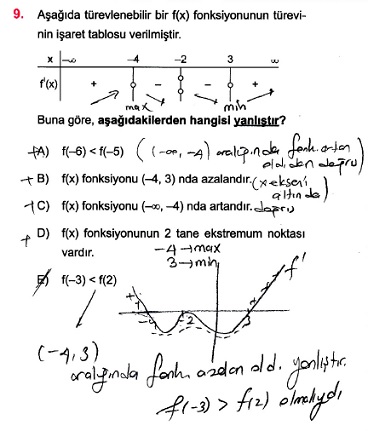 9. Aşağıda türevlenebilir bir f(x) fonksiyonunun türevi-
nin işaret tablosu verilmiştir.
x -∞ -4 -2 3 ∞
f'(x) + - - +
max min
Buna göre, aşağıdakilerden hangisi yanlıştır?
A) f(-6) < f(-5) ((-∞, -4) aralığında fonk. artan
olduğundan doğru)
B) f(x) fonksiyonu (-4, 3) nda azalandır. (x ekseni
altında)
C) f(x) fonksiyonu (-∞, -4) nda artandır. doğru
D) f(x) fonksiyonunun 2 tane ekstremum noktası
vardır. -4→max
3→min
E) f(-3) < f(2)
f'
+ -4 -2 3
(-4, 3)
aralığında fonk. azalan old. yanlıştır.
f(-3) > f(2) olmalıydı